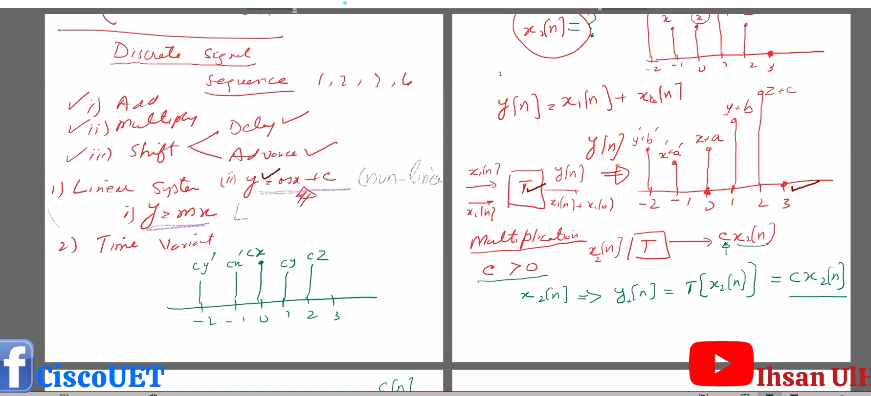 Discrete Signal
Sequence 1, 2, 3, 6
i) Add
ii) Multiply
iii) Shift
Delay
Advance
1) Linear System (ii) y = mx + c (non-linea
i) y = mx L
2) Time Variant
cy' cx' cx cy cz
-2 -1 0 1 2 3
x₂[n] =
x x
-2 -1 0 1 2 3
y[n] = x₁[n] + x₂[n]
y[n] y'+b' x'+a' x+a y+b z+c
x₁[n] T y[n] ⇒
x₁[n] x₁[n] + x₁[n]
-2 -1 0 1 2 3
Multiplication x₂[n] T → cx₂[n]
c > 0
x₂[n] ⇒ y₂[n] = T[x₂[n]] = cx₂[n]
f CiscoUET
Ihsan UlH
c[n]